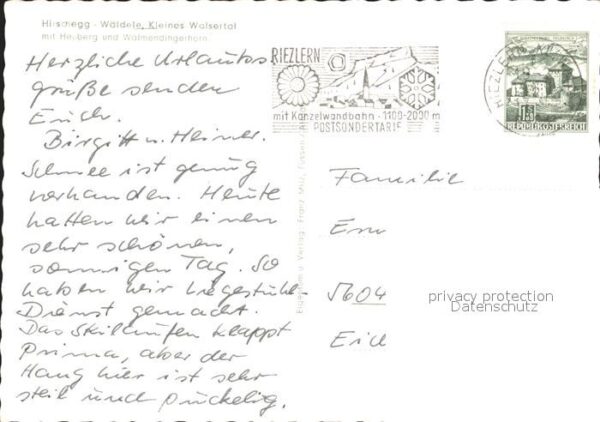 Hirschegg - Wäldele, Kleines Walsertal
mit Heuberg und Walmendingerhorn
Herzliche Urlaubs
grüße senden
Euch
Birgitt u. Heiner.
Schnee ist genug
vorhanden. Heute
hatten wir einen
sehr schönen,
sonnigen Tag. So
haben wir Liegestuhl-
Dienst gemacht.
Das Skilaufen klappt
Prima, aber der
Hang hier ist sehr
steil und puckelig.
Verlag Franz Milz,
RIEZLERN
mit Kanzelwandbahn - 1100-2000 m
POSTSONDERTARIF
RIEZLERN
1.50
REPUBLIK ÖSTERREICH
Familie
Erw
5604
Erich
privacy protection
Datenschutz